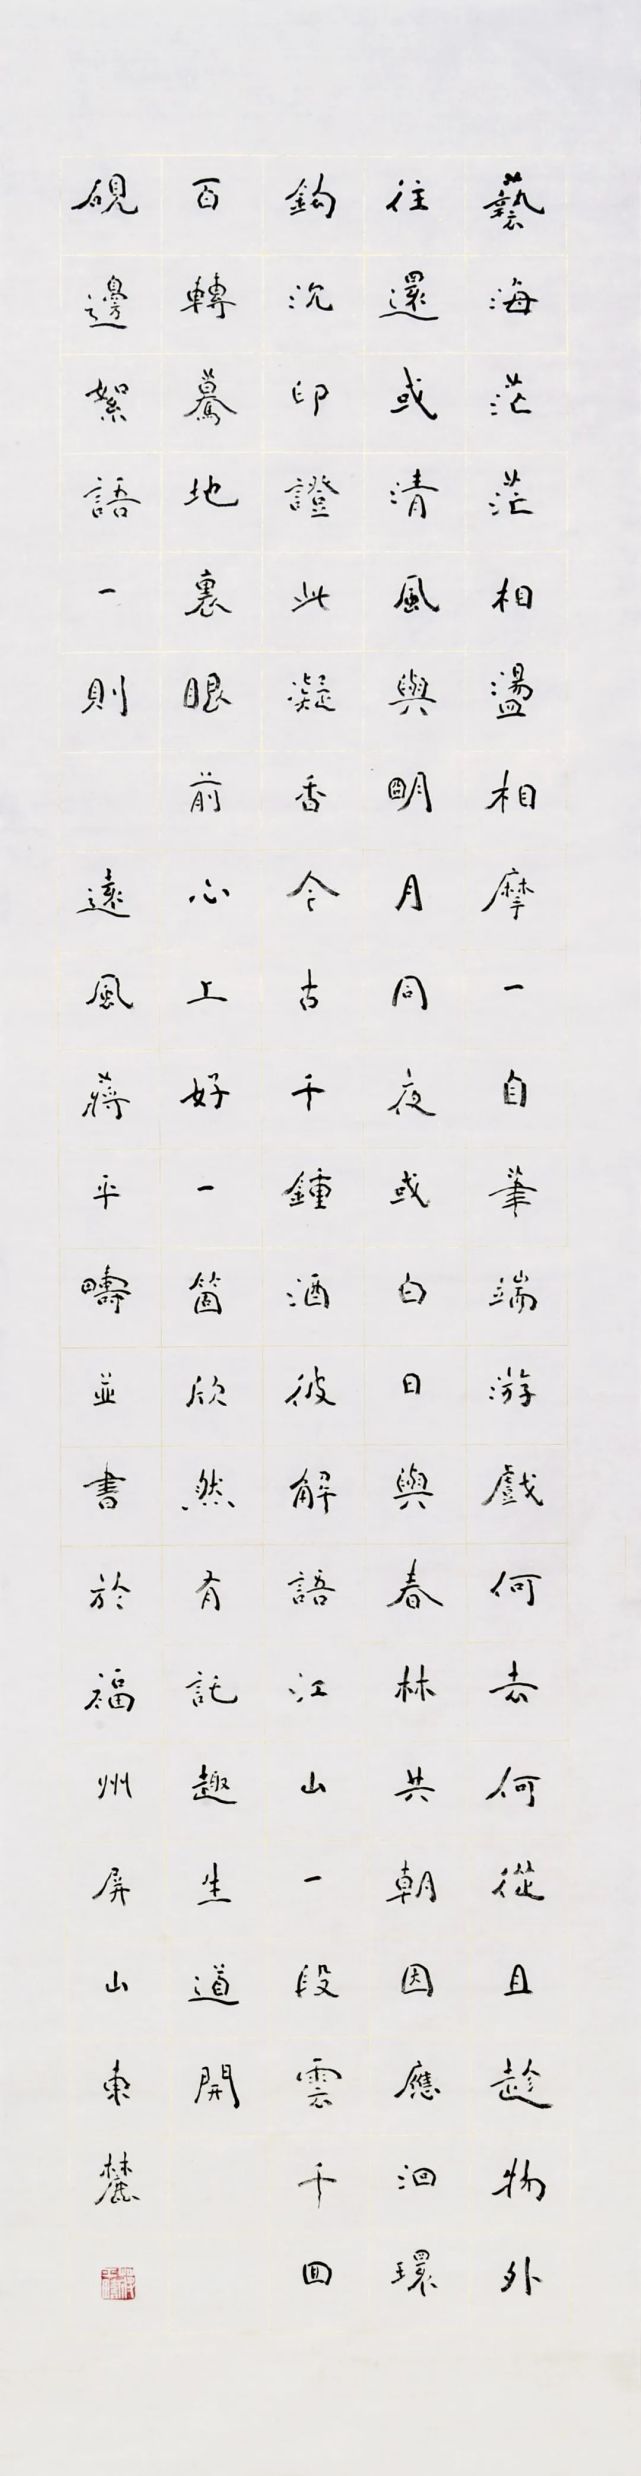 藝海茫茫相盪相摩一自筆端游戲何去何從且趁物外
往還或清風與朙月同夜或白日與春林共朝因應洄環
鈎沉印證此凝香今古千鍾酒彼解語江山一段雲千回
百轉驀地裏眼前心上好一箇欣然有託趣生道開
硯邊絮語一則 遠風蔣平疇並書於福州屏山東麓